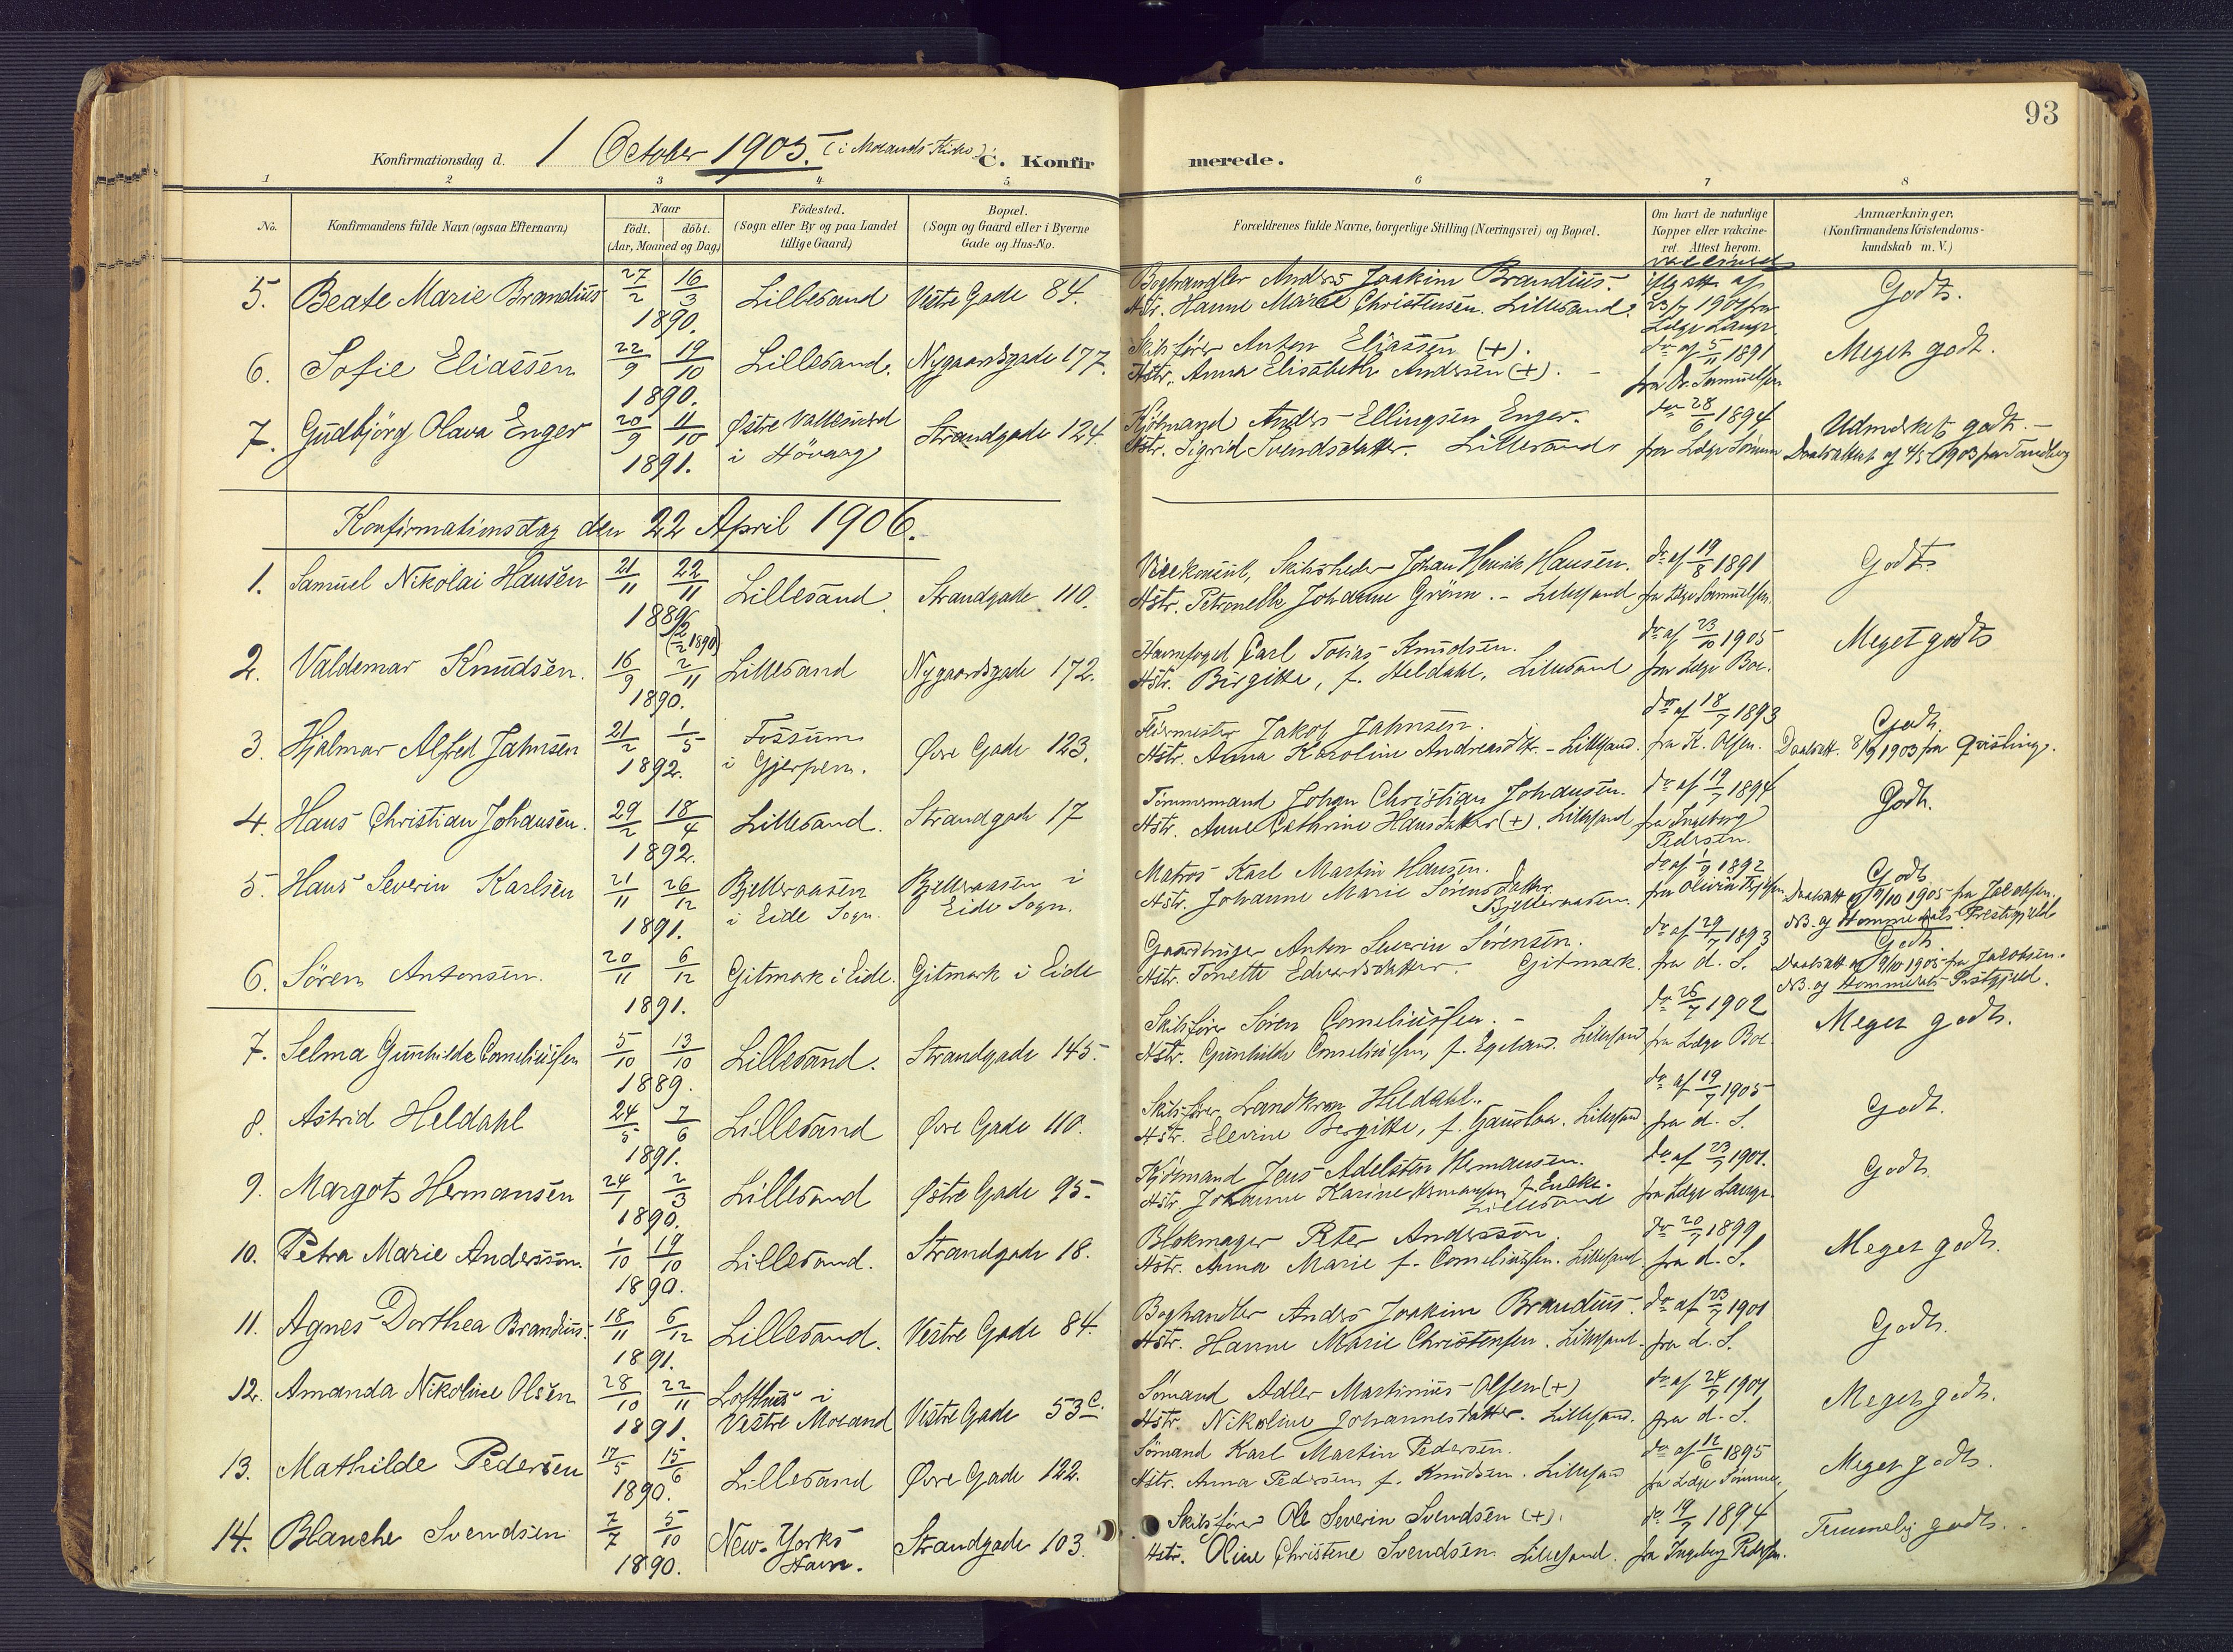 93
Konfirmationsdag d. 1 October 1905. (i Moland's Kirke) C. Konfir merede.
1 2 3 4 5 6 7 8
No. Konfirmandens fulde Navn (ogsaa Efternavn) Naar født. døbt. (Aar, Maaned og Dag) Fødested. (Sogn eller By og paa Landet tillige Gaard) Bopæl. (Sogn og Gaard eller i Byerne Gade og Hus-No. Forældrenes fulde Navne, borgerlige Stilling (Næringsvei) og Bopæl. Om havt de naturlige Kopper eller vakcineret. Attest herom. Anmærkninger. (Konfirmandens Kristendomskundskab m. V.)
5. Beate Marie Brandius 27/2 16/3 1890. Lillesand Vestre Gade 84. Boghandler Anders Joakim Brandius.
Hstr. Hanne Marie Christensen. Lillesand. 23/7 1901 fra Læge Lange Godt.
6. Sofie Eliassen 22/9 19/10 1890. Lillesand. Nygaardsgade 177. Skibsfører Anton Eliassen (+).
Hstr. Anna Elisabeth Andersen (+). do af 5/11 1891 fra Dr. Samuelsen Meget godt.
7. Gudbjörg Olava Enger 20/9 11/10 1891. Østre Vallesverd i Hövaag Strandgade 124. Kjøbmand Anders Ellingsen Enger.
Hstr. Sigrid Svendsdatter. Lillesand. do 28/6 1894 fra Læge Sømme Udmerket godt. -
Daabsattest af 4/5 1903 fra Tandberg
Konfirmationsdag den 22 April 1906.
1. Samuel Nikolai Hansen 21/11 22/11 1889 (2/2 1890) Lillesand. Strandgade 110. Vicekonsul, Skibsreder Johan Henrik Hansen.
Hstr. Petronelle Johanne Grönn. - Lillesand do af 19/8 1891 fra Læge Samuelsen. Godt
2. Valdemar Knudsen. 16/9 2/11 1890. Lillesand Nygaardsgade 172. Havnefoged Carl Tobias Knudsen.
Hstr. Birgitte, f. Heldahl, Lillesand do af 23/10 1905 fra Læge Boe. Meget godt
3. Hjalmar Alfred Jahnsen 21/2 1/5 1892. Fossum i Gjerpen. Øvre Gade 123. Jakob Jahnsen.
Hstr. Anna Karoline Andreasdtr. - Lillesand. do af 18/7 1893 fra K. Olsen. Godt
Daabsatt. 8/9 1903 fra Qvisling.
4. Hans Christian Johansen. 29/2 18/4 1892. Lillesand. Strandgade 17 Tømmermand Johan Christian Johansen.
Hstr. Anne Cathrine Hansdatter (+). Lillesand do af 19/7 1894 fra Ingeborg Pedersen. Godt.
5. Hans Severin Karlsen 21/11 26/12 1891. Bjelleraasen i Eide Sogn. Bjelleraasen i Eide Sogn. Matros Karl Martin Hansen.
Hstr. Johanne Marie Sørensdatter. Bjelleraasen. do af 1/9 1892 Godt
Daabsatt af 9/10 1905 fra Jakobsen. NB. og Hommedals Prestegjeld
6. Sören Antonsen. 20/11 6/12 1891. Gitmark i Eide. Gitmark i Eide Gaardbruger Anton Severin Sörensen.
Hstr. Tonette Edvardsdatter. Gitmark. do af 29/7 1893 fra d. S. Godt
Daabsatt af 9/10 1905 fra Jakobsen. NB. og Hommedals Prestgjeld.
7. Selma Gunhilde Corneliussen 5/10 13/10 1889. Lillesand. Strandgade 145. Skibsfører Sören Corneliussen. -
Hstr. Gunhilde Corneliussen, f. Egeland. Lillesand do 26/7 1902 fra Læge Boe. Meget godt.
8. Astrid Heldahl 24/5 7/6 1891. Lillesand Øvre Gade 110. Skibsfører Landkron Heldahl.
Hstr. Elevine Bergitte, f. Gauslaa. Lillesand do af 19/7 1905 fra d. S. Godt.
9. Margot Hermansen 24/1 2/3 1890. Lillesand Østre Gade 95. Kjöbmand Jens Adelsten Hermansen.
Hstr. Johanne Karine Hermansen f. Lillesand do af 23/7 1901. fra Læge Lange. Godt
10. Petra Marie Andersson. 1/10 19/10 1890. Lillesand. Strandgade 18. Blokmager Peter Andersson.
Hstr. Anna Marie f. Corneliussen. Lillesand. do 20/7 1899 fra d. S. Meget godt.
11. Agnes Dorthea Brandius. 18/11 6/12 1891. Lillesand. Vestre Gade 84. Boghandler Anders Joakim Brandius.
Hstr. Hanne Marie Christensen. Lillesand. do af 23/7 1901 fra d. S. Godt.
12. Amanda Nikoline Olsen 28/10 22/11 1891. Lofthus i Vestre Moland Vestre Gade 53 c. Sømand Adler Martinius Olsen (+)
Hstr. Nikoline Johannesdatter. Lillesand. do af 24/7 1901 fra d. S. Meget godt.
13. Mathilde Pedersen 17/5 15/6 1890. Lillesand Øvre Gade 122. Sømand Karl Martin Pedersen.
Hstr. Anna Pedersen f. Knudsen. Lillesand do af 12/6 1895 fra Læge Sømme. Meget godt.
14. Blanche Svendsen 7/7 5/10 1890. New-Yorks Havn. Strandgade 103. Skibsfører Ole Severin Svendsen (+).
Hstr. Oline Christene Svendsen Lillesand. do 19/7 1894 fra Ingeborg Pedersen. Temmelig godt.